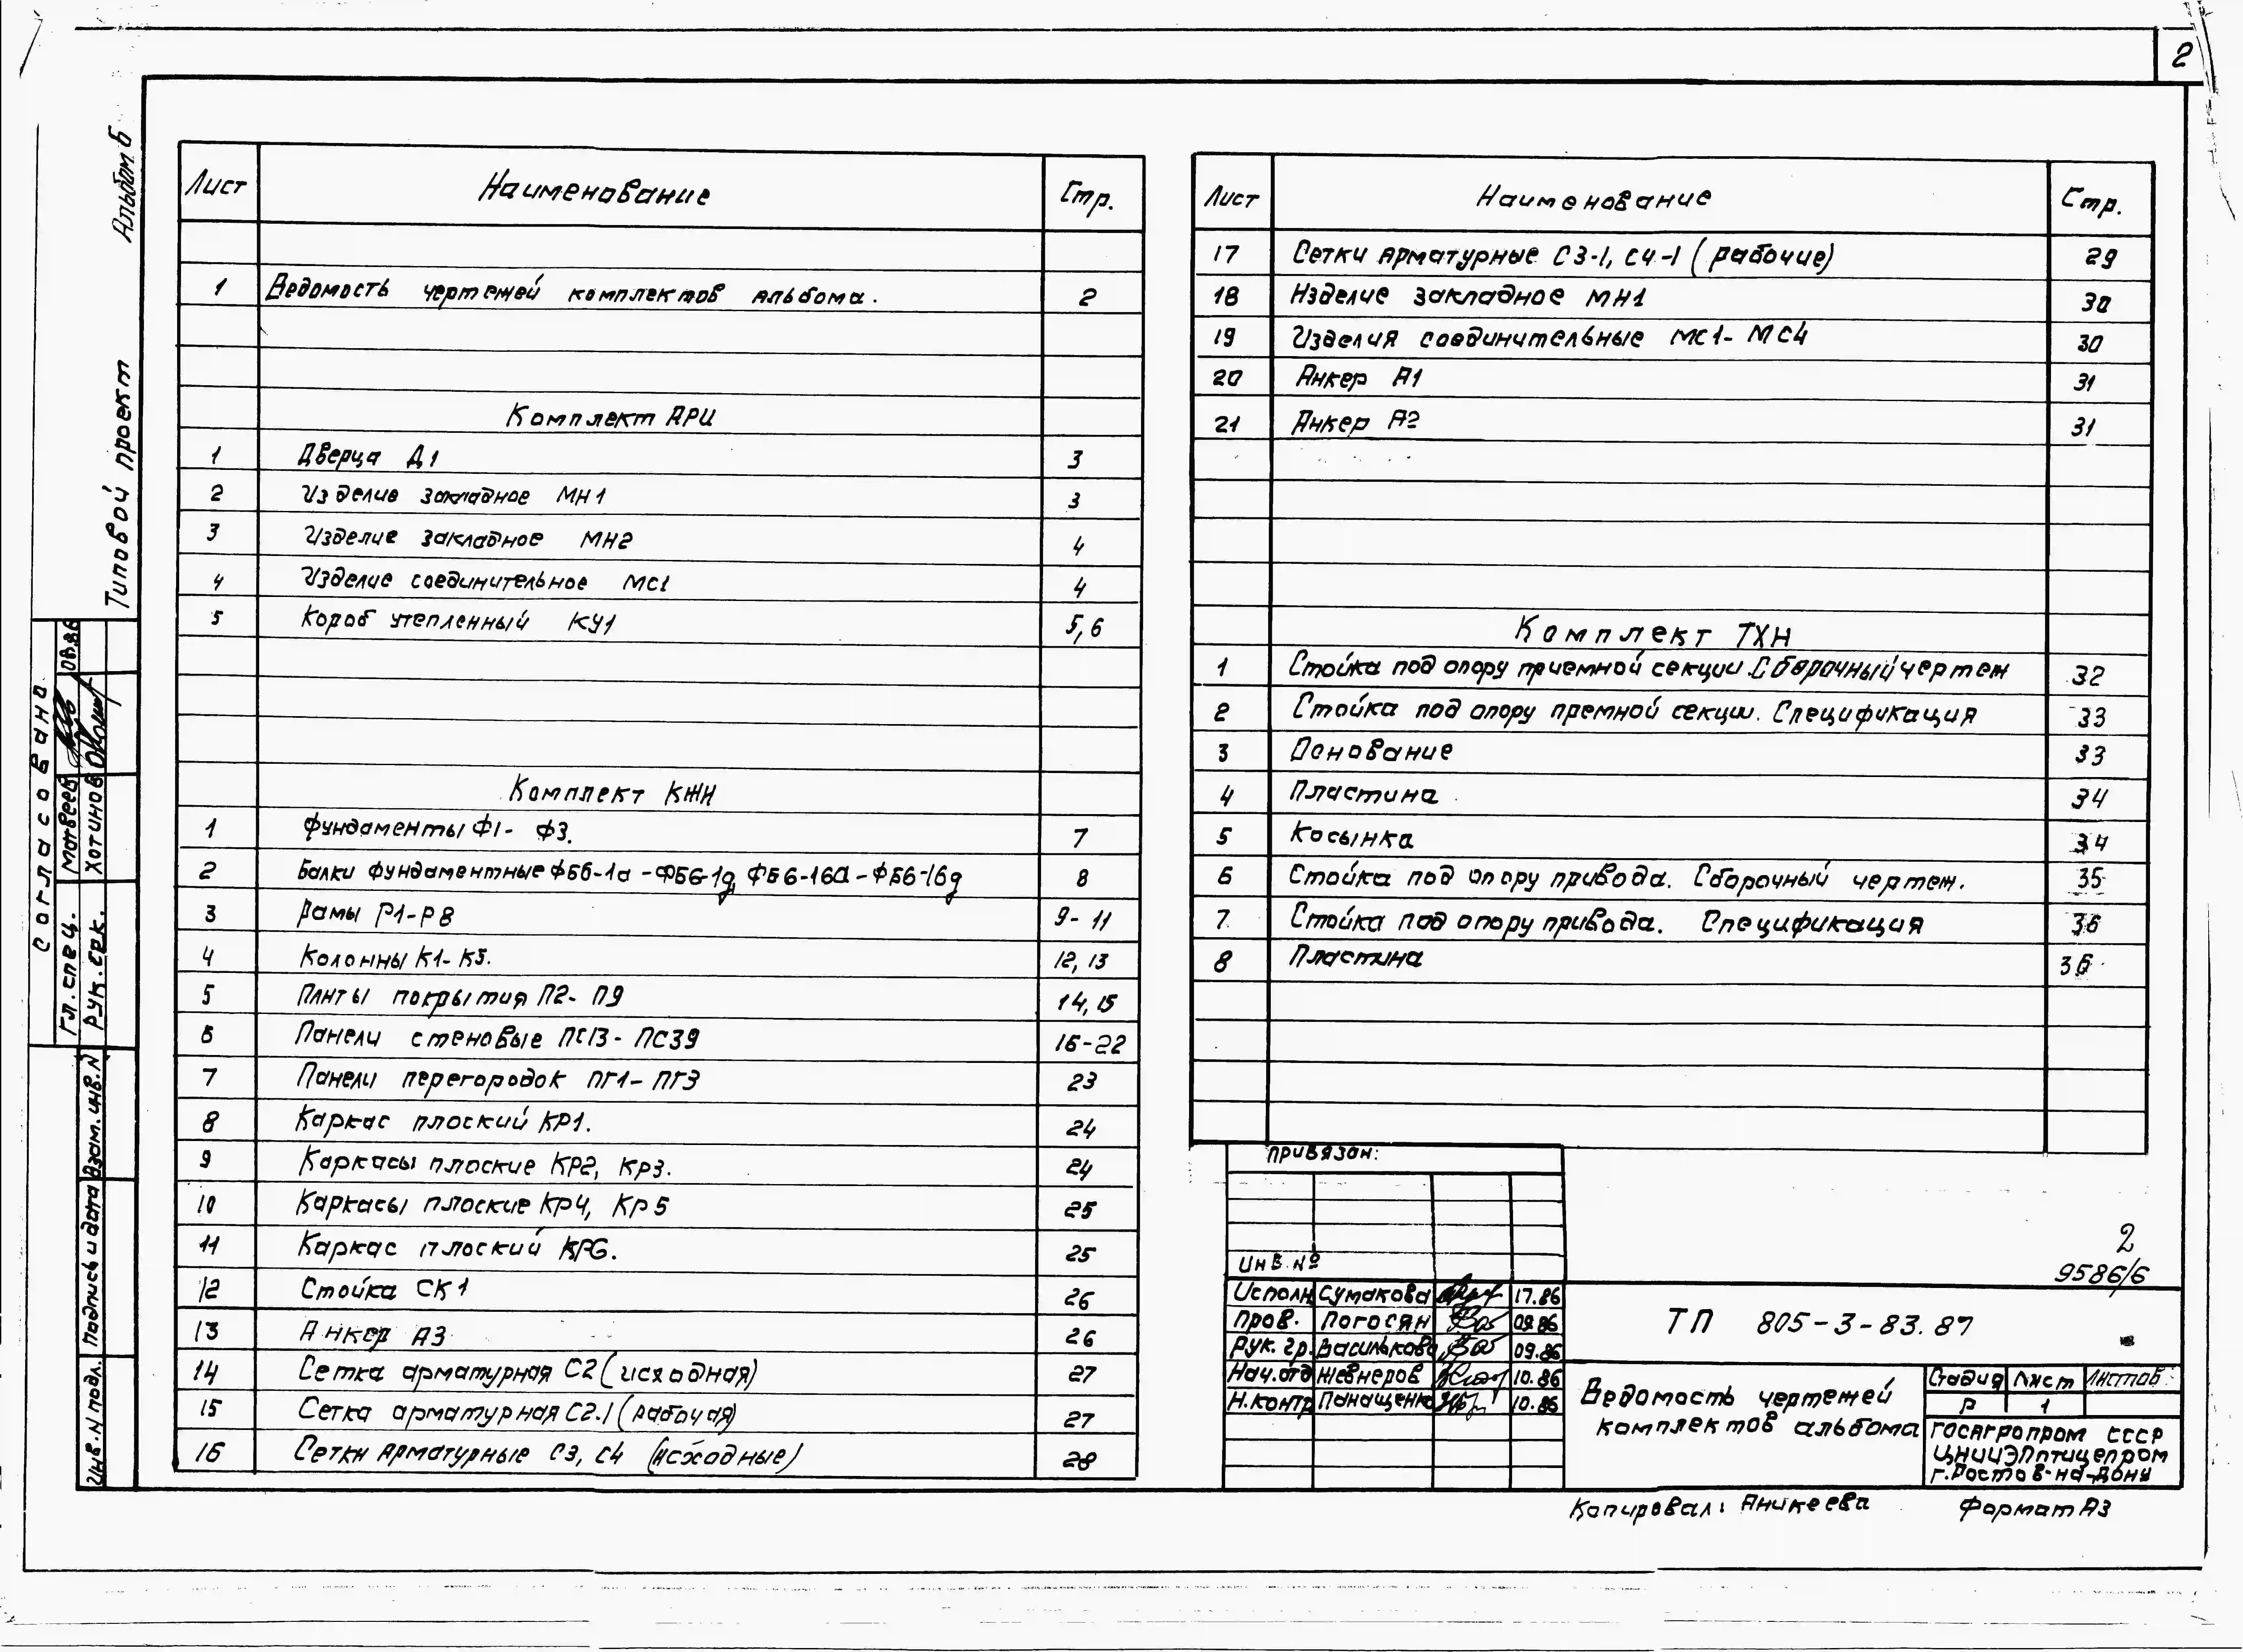 2
Альбом Б
Типовой проект
Согласовано
Гл. спец. Матвеев 08.86
Рук. сек. Хотинов
Взам. инв. N
Подпись и дата
Инв. N подл.
Лист Наименование Стр.
1 Ведомость чертежей комплектов альбома. 2
Комплект АРИ
1 Дверца Д1 3
2 Изделие закладное МН1 3
3 Изделие закладное МН2 4
4 Изделие соединительное МС1 4
5 Короб утепленный КУ1 5,6
Комплект КЖИ
1 Фундаменты Ф1- Ф3. 7
2 Балки фундаментные ФБ6-1а - ФБ6-1д, ФБ6-16а - ФБ6-16д 8
3 Рамы Р1-Р8 9-11
4 Колонны К1- К5. 12, 13
5 Плиты покрытия П2- П9 14, 15
6 Панели стеновые ПС13- ПС39 16-22
7 Панели перегородок ПГ1- ПГ3 23
8 Каркас плоский КР1. 24
9 Каркасы плоские КР2, КР3. 24
10 Каркасы плоские КР4, КР5 25
11 Каркас плоский КР6. 25
12 Стойка СК1 26
13 Анкер А3 26
14 Сетка арматурная С2 (исходная) 27
15 Сетка арматурная С2.1 (рабочая) 27
16 Сетки арматурные С3, С4 (исходные) 28
Лист Наименование Стр.
17 Сетки арматурные С3-1, С4-1 (рабочие) 29
18 Изделие закладное МН1 30
19 Изделия соединительные МС1- МС4 30
20 Анкер А1 31
21 Анкер А2 31
Комплект ТХН
1 Стойка под опору приемной секции. Сборочный чертеж 32
2 Стойка под опору премной секции. Спецификация 33
3 Основание 33
4 Пластина 34
5 Косынка 34
6 Стойка под опору привода. Сборочный чертеж. 35
7 Стойка под опору привода. Спецификация 36
8 Пластина 36
Привязан:
Инв. №
2
9586/6
Исполн. Сумакова 17.86
Пров. Погосян 09.86
Рук. гр. Василькова 09.86
Нач. отд Жевнеров 10.86
Н. контр Панащенко 10.86
ТП 805-3-83.87
Ведомость чертежей
комплектов альбома
Стадия Лист Листов
Р 1
Госагропром СССР
ЦНИИЭПптицепром
г. Ростов-на-Дону
Копировал: Аникеева Формат А3